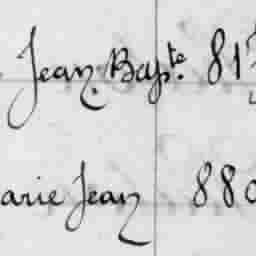 Jean Bapte. 81
arie Jean 880